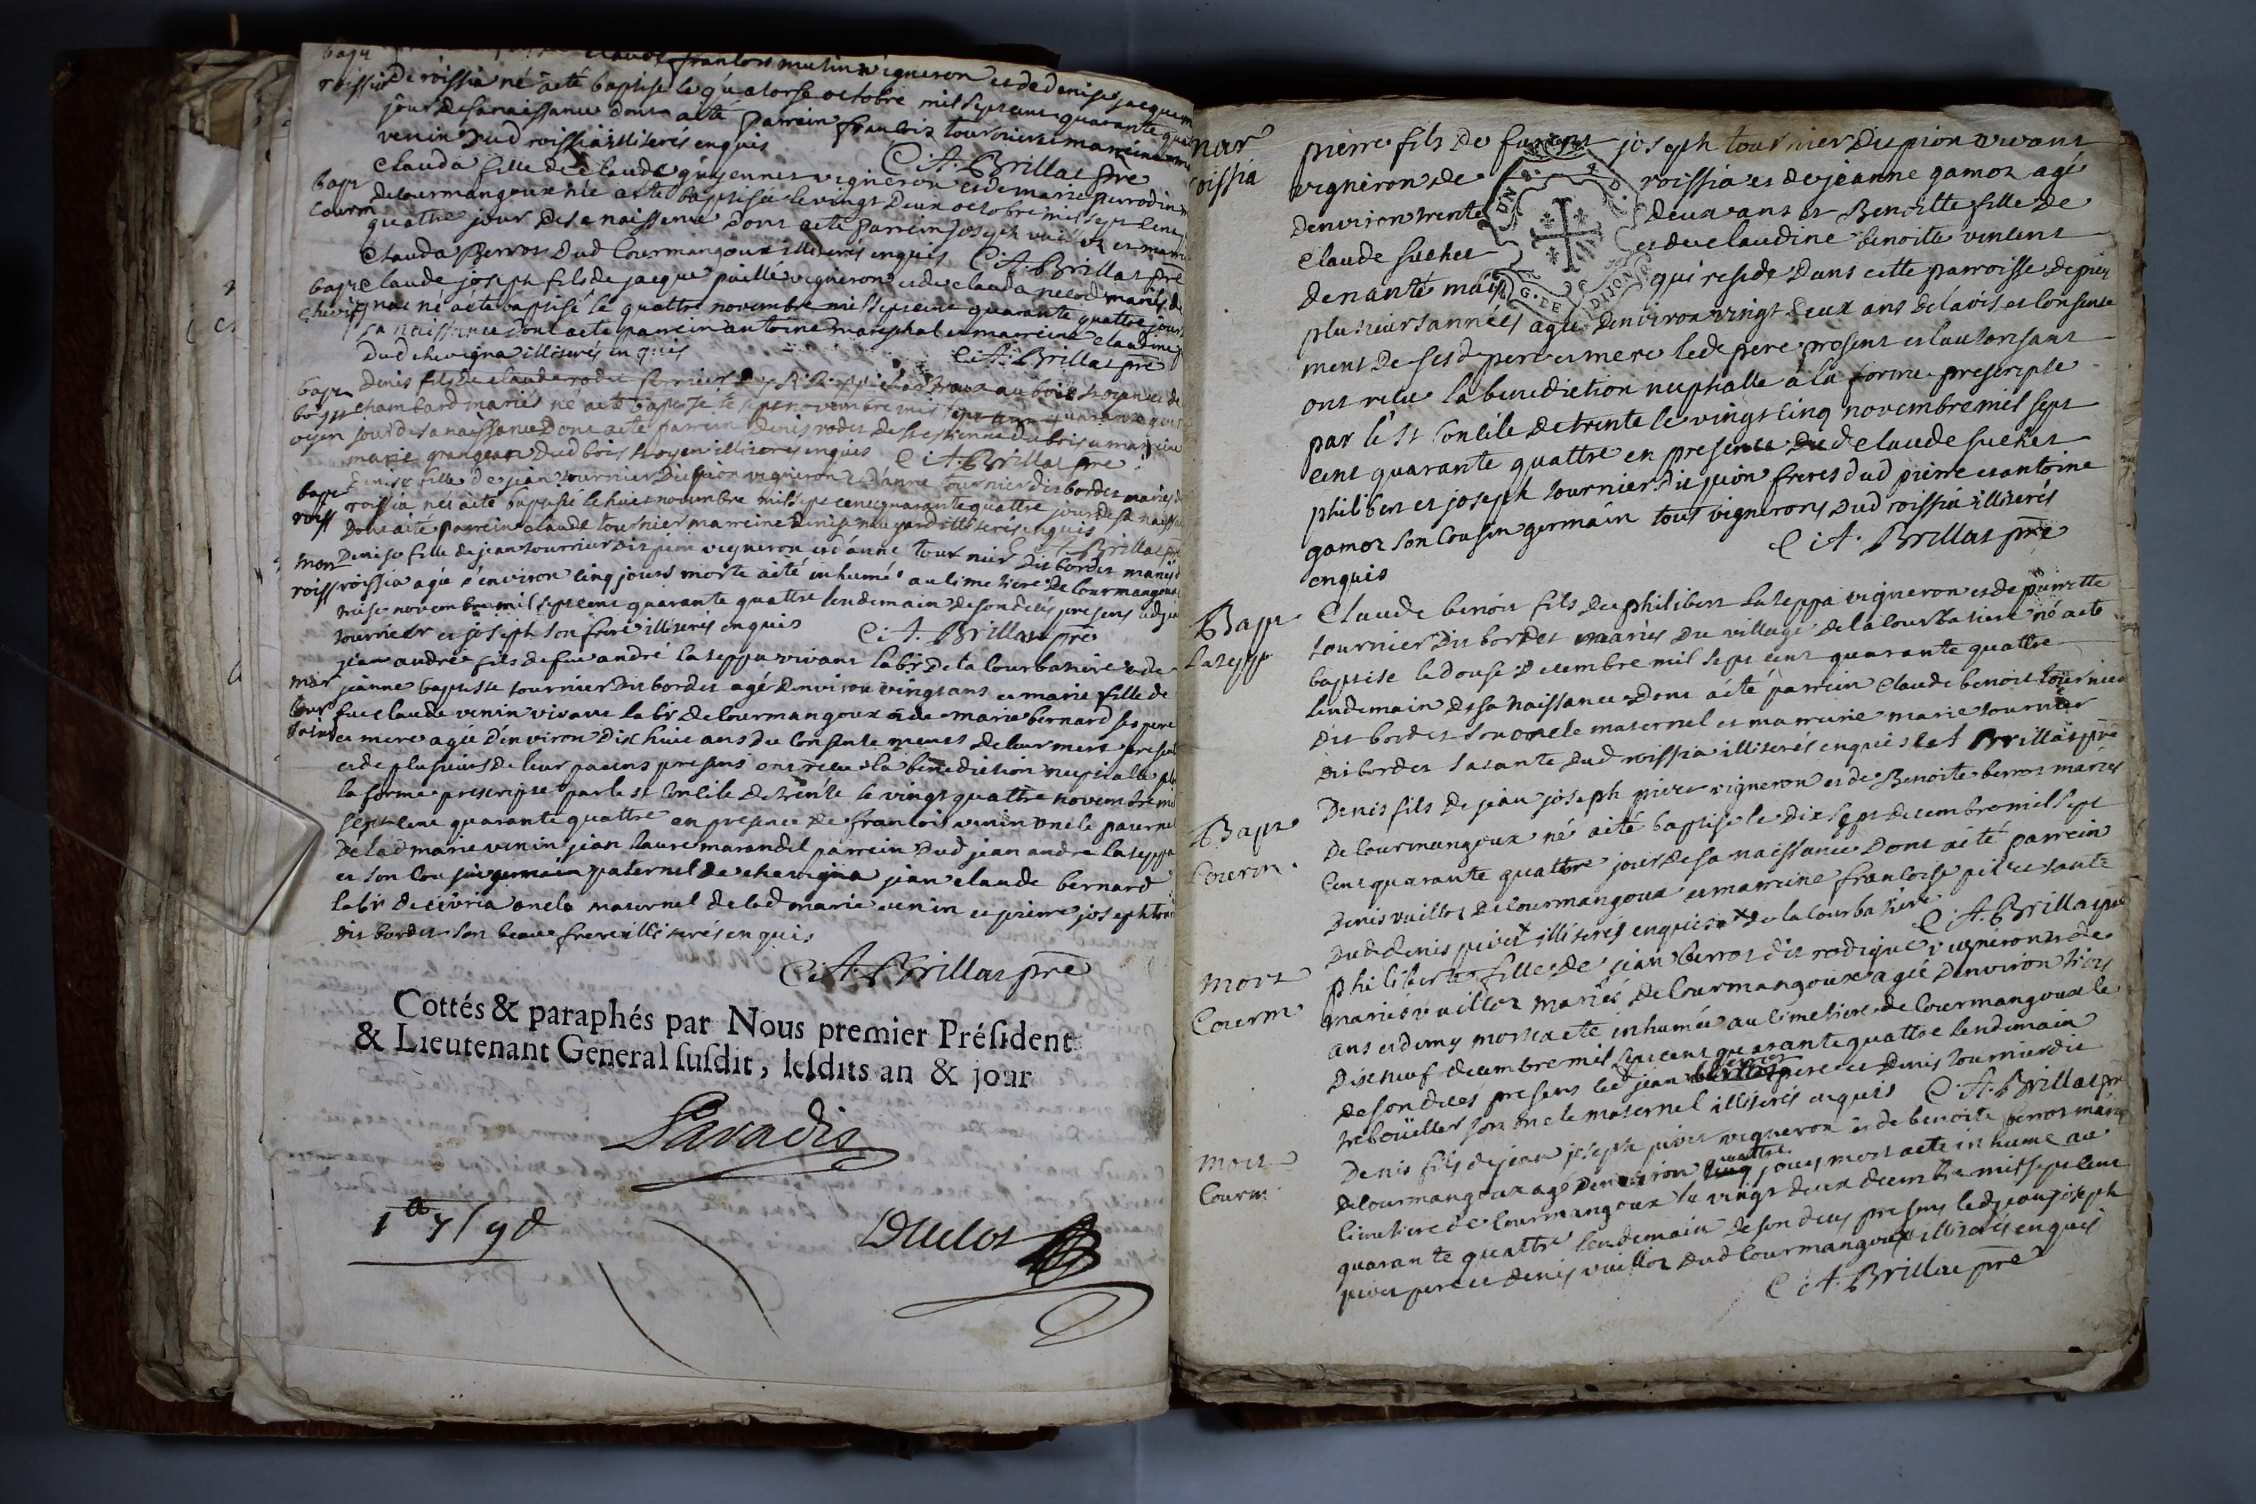 bapt
claude francois mutin vigneron et de denise jacquem
roissia de roissia né a eté baptise le quatorse octobre mil sept cent quarante quat
jour de sa naissance dont a eté parrein francois tournier et marreine
venin dud roissia illiterés enquis C: A: Brillat pre
bapt claude fille de claude guyennet vigneron et de marie perrodin m
courm de courmangoux née a eté baptisée le vingt deux octobre mil sept cent
quattre jour de sa naissance dont a eté parrein joseph vuillot et marr
clauda Berrot dud Courmangoux illiterés enquis C: A: Brillat pre
bapt claude joseph fils de jacque puille vigneron et de clauda mariés de
chevig né a eté baptisé le quattre novembre mil sept cent quarante quattre jour
sa naissance dont a eté parrein antoine mareschal et marreine claudine
dud chevigna illiterés enquis C: A: Brillat pre
bapt Denis fils de claude rodet
boys chambard mariés né a eté baptise le sept novembre mil sept cent quarante quat
oyen jour de sa naissance dont a eté parrein denis rodet de st estienne du bois et marreine
marie grangeon dud bois st oyen illiterés enquis C: A: Brillat pre
bapt Denise fille de jean tournier dit pion vigneron et d'anne tournier dit bordet mariés de
roiss roissia née a eté baptisée le huit novembre mil sept cent quarante quattre jour de sa naiss
dont a eté parrein claude tournier marreine denise illiterés enquis
C: A: Brillat pre
mort Denise fille de jean tournier dit pion vigneron et d'anne tournier dit bordet mariés
roiss roissia agée d'environ cinq jours morte a eté inhumée au cimetiere de courmangoux
treise novembre mil sept cent quarante quattre lendemain de son decés presens led
tournier et joseph son frere illiterés enquis C: A: Brillat pre
jean andré fils de feu andré lateppa vivant labr de la courbatiere et de
mar jeanne baptiste tournier dit bordet agé d'environ vingt ans et marie fille de
cour feu claude venin vivant labr de courmangoux et de marie bernard ses pere
et mere agée d'environ dix huit ans du consentement de leur mere presentes
et de plusieurs de leur parens presens ont receu la benediction nuptialle
la forme prescripte par le st concile de trente le vingt quattre novembre mil
sept cent quarante quattre en presence de francois venin oncle paternel
de lad marie venin jean laure marandet parrein dud jean andré lateppa
et son cousin germain paternel de chevigna jean claude bernard
labr de civria oncle maternel de lad marie venin et pierre joseph tour
dit bordet son beau frere illiterés enquis
C: A: Brillat pre
Cottés & paraphés par Nous premier Président
& Lieutenant General susdit, lesdits an & jour
Paradis
mar pierre fils de furent joseph tournier dit pion vivant
roissia vigneron de roissia et de jeanne gamoz agé
d'environ trente deux ans et Benoitte fille de
claude suchet et de claudine benoite vincent
de nanté mais qui reside dans cette parroisse depuis
plusieurs années agée d'environ vingt deux ans de l'avis et consente
ment de ses d pere et mere led pere present et l'autorisant
ont receu la benediction nuptialle a la forme prescripte
par le st concile de trente le vingt cinq novembre mil sept
cent quarante quattre en presence dud claude suchet
philibert et joseph tournier dit pion freres dud pierre et antoine
gamoz son cousin germain tous vignerons dud roissia illiterés
enquis C: A: Brillat pre
Bapt Claude benoit fils de philibert lateppa vigneron et de pierrette
lateppa tournier dit bordet mariés du village de la courbatiere né a eté
baptise le douse decembre mil sept cent quarante quattre
lendemain de sa naissance dont a eté parrein claude benoit tournier
dit bordet son oncle maternel et marreine marie tournier
dit bordet sa tante dud roissia illiterés enquis C: A: Brillat pre
Bapt Denis fils de jean joseph pivet vigneron et de Benoite berrot mariés
Courm de courmangoux né a eté baptisé le dix sept decembre mil sept
cent quarante quattre jour de sa naissance dont a eté parrein
denis vuillot de courmangoux et marreine francoise pivet tante
dud denis pivet x illiterés enquis x de la courbatiere C: A: Brillat pre
mort philiberte fille de jean berrot dit rodique vigneron et de
Courm marie vuillot mariés de courmangoux agée d'environ trois
ans et demy morte a eté inhumée au cimetiere de courmangoux le
dix neuf decembre mil sept cent quarante quattre lendemain
de son deces presens led jean berrot pere et denis tournier dit
treboüillet son oncle maternel illiterés enquis C: A: Brillat pre
mort Denis fils de jean joseph pivet vigneron et de benoite berrot mariés
Courm de courmangoux agé d'environ quattre jours mort a eté inhumé au
cimetiere de courmangoux le vingt deux decembre mil sept cent
quarante quattre lendemain de son deces presens led jean joseph
pivet pere et denis vuillot dud courmangoux illiterés enquis
C: A: Brillat pre